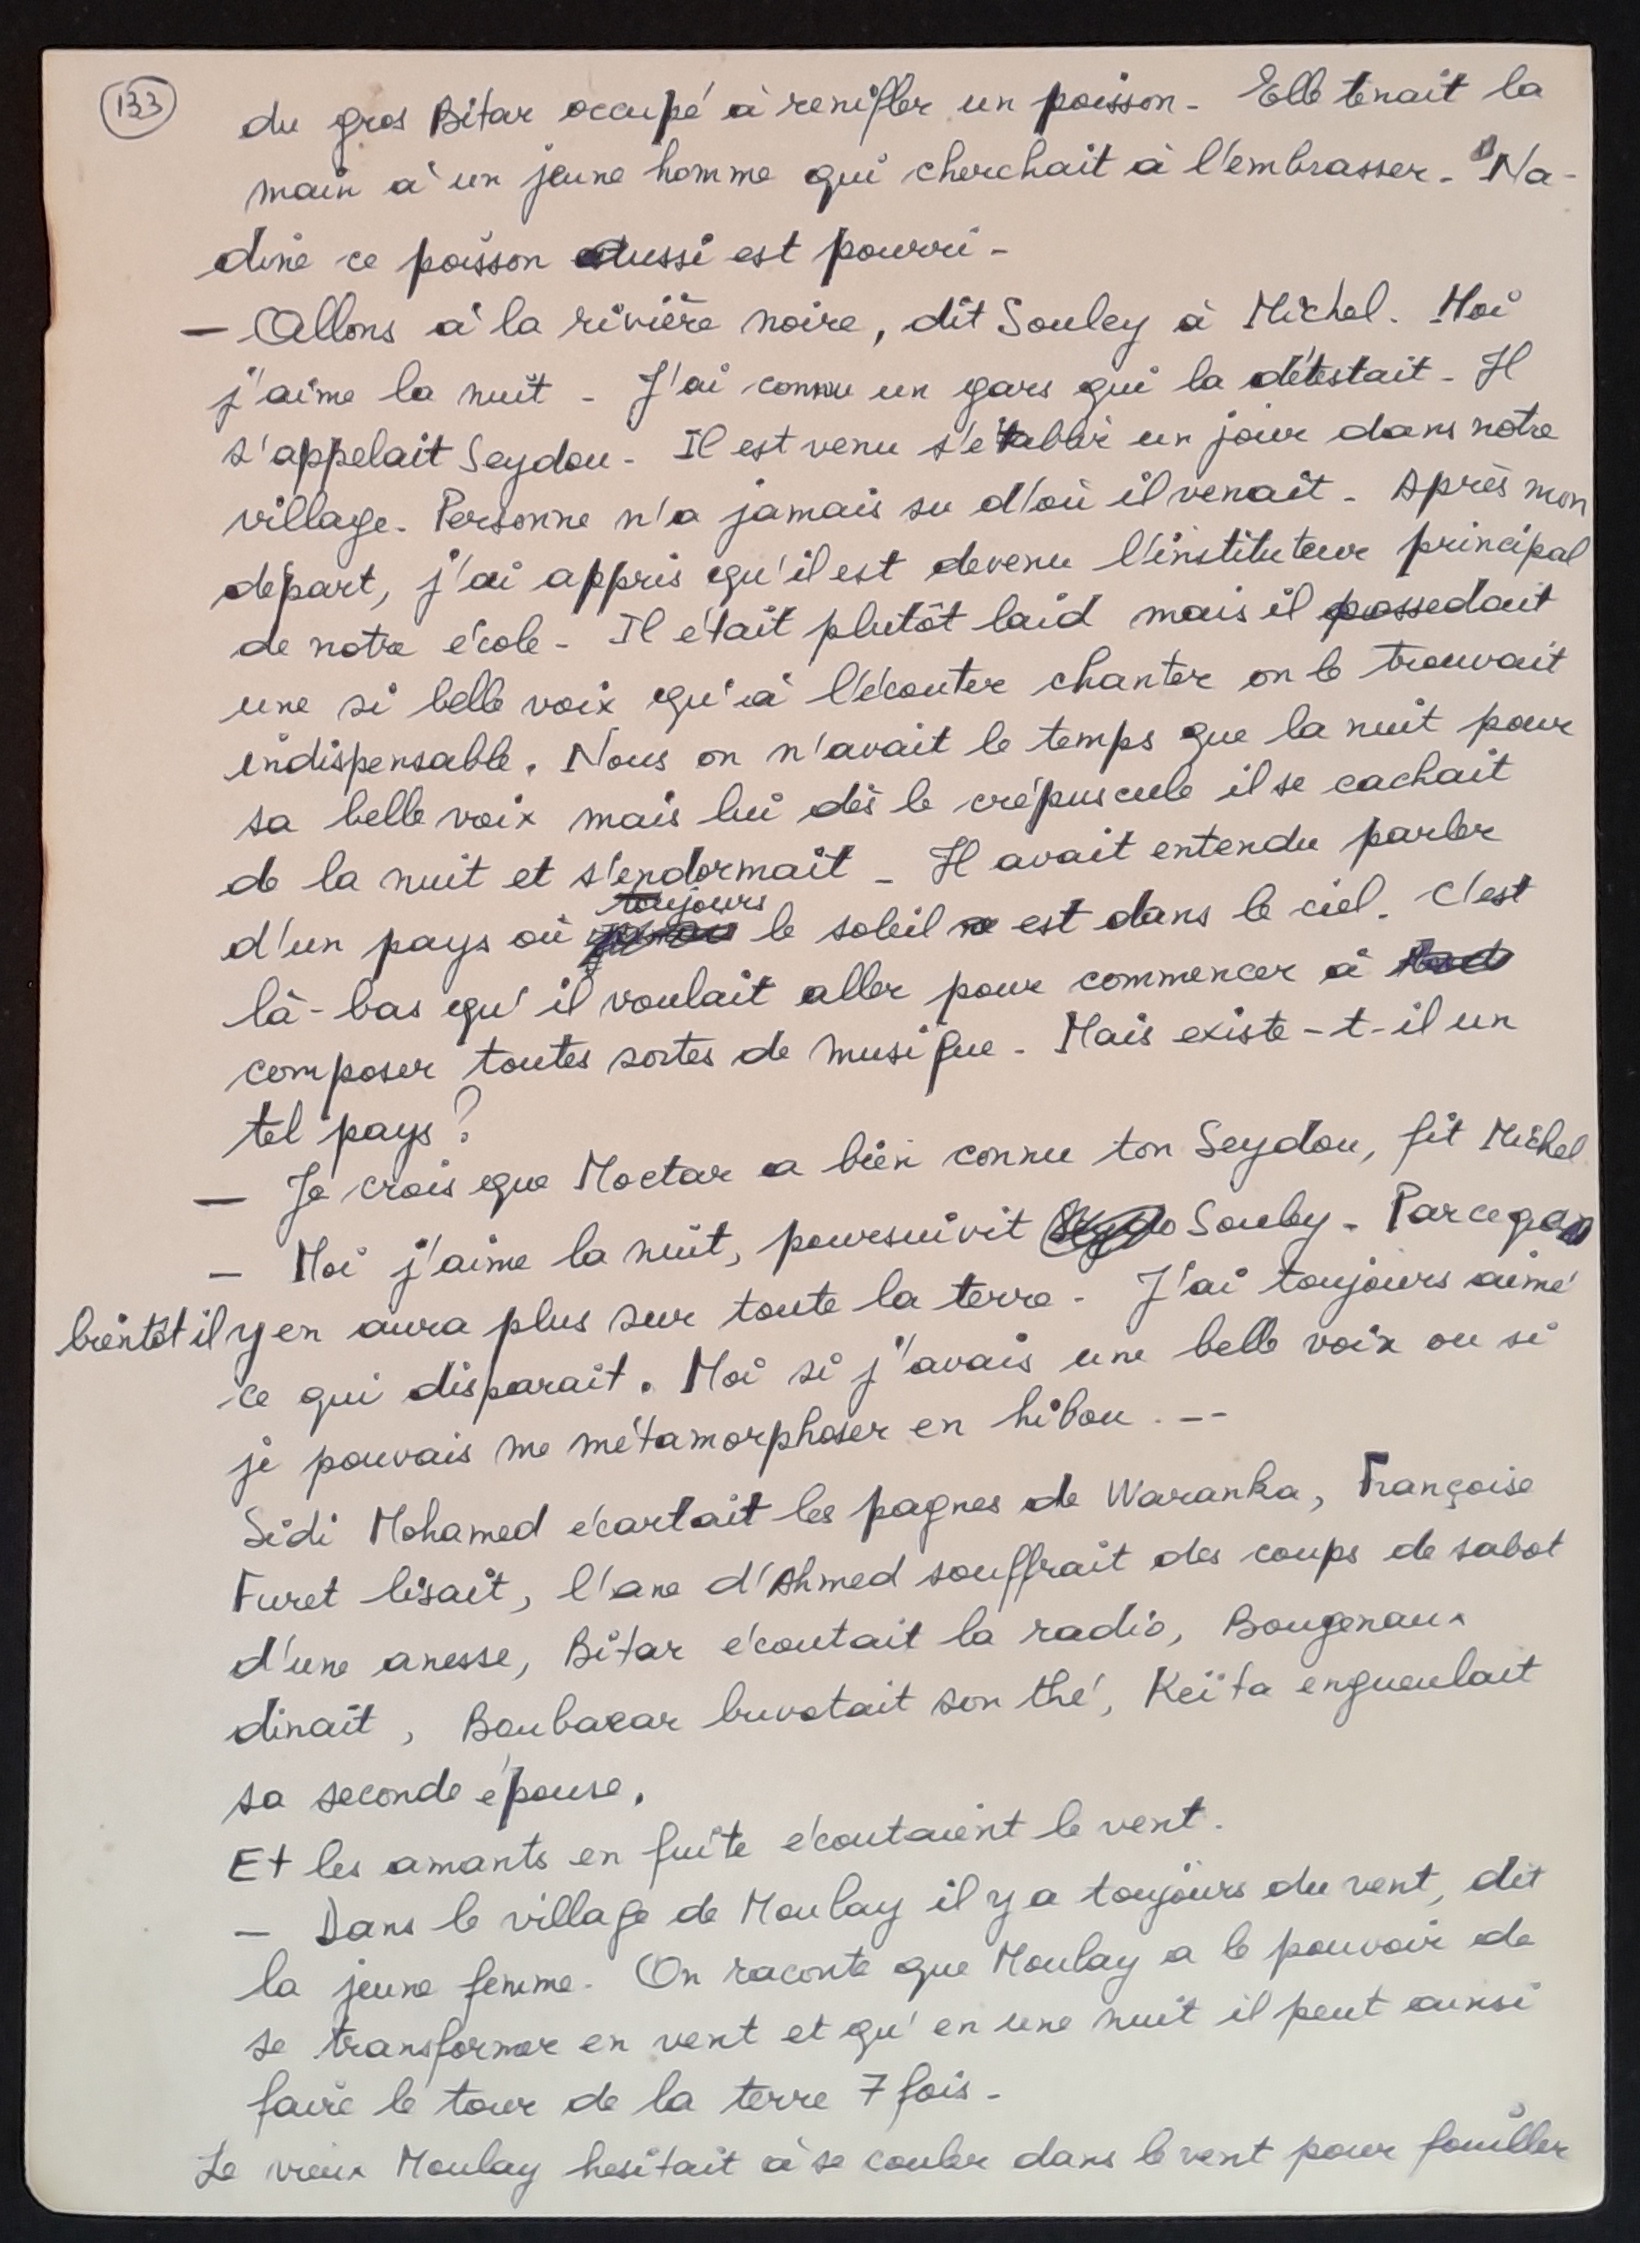 133
du gros Bitar occupé à renifler un poisson - Elle tenait la
main à un jeune homme qui cherchait à l'embrasser - Na-
dine ce poisson aussi est pourri -
— Allons à la rivière noire, dit Souley à Michel. Moi
j'aime la nuit - J'ai connu un gars qui la détestait - Il
s'appelait Seydou - Il est venu s'établir un jour dans notre
village - Personne n'a jamais su d'où il venait - Après mon
départ, j'ai appris qu'il est devenu l'instituteur principal
de notre école - Il était plutôt laid mais il possedait
une si belle voix qu'à l'écouter chanter on le trouvait
indispensable. Nous on n'avait le temps que la nuit pour
sa belle voix mais lui dès le crépuscule il se cachait
de la nuit et s'endormait - Il avait entendu parler
toujours
d'un pays où le soleil est dans le ciel. C'est
là-bas qu'il voulait aller pour commencer à
composer toutes sortes de musique - Mais existe-t-il un
tel pays ?
— Je crois que Moctar a bien connu ton Seydou, fit Michel
— Moi j'aime la nuit, poursuivit Souley - Parceque
bientôt il y en aura plus sur toute la terre - J'ai toujours aimé
ce qui disparait. Moi si j'avais une belle voix ou si
je pouvais me métamorphoser en hibou . --
Sidi Mohamed écartait les pagnes de Waranka, Françoise
Furet lisait, l'ane d'Ahmed souffrait des coups de sabot
d'une anesse, Bitar écoutait la radio, Bougenaux
dinait, Boubakar buvotait son thé, Keïta engueulait
sa seconde épouse.
Et les amants en fuite écoutaient le vent.
— Dans le village de Moulay il y a toujours du vent, dit
la jeune femme - On raconte que Moulay a le pouvoir de
se transformer en vent et qu'en une nuit il peut ainsi
faire le tour de la terre 7 fois -
Le vieux Moulay hesitait à se couler dans le vent pour fouiller